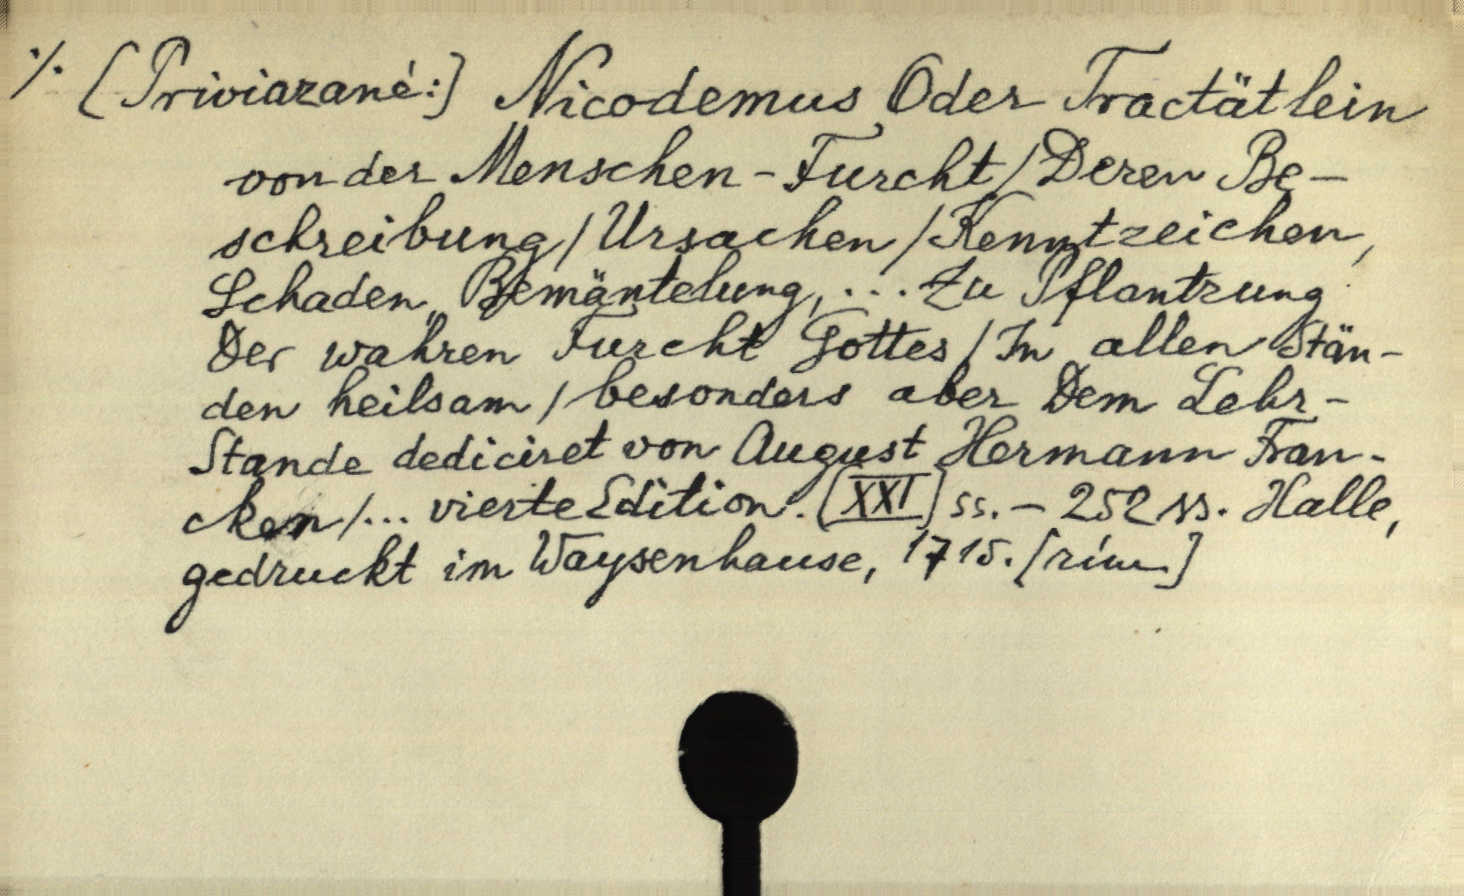 ./. [Priviazané:] Nicodemus Oder Tractätlein
von der Menschen-Furcht/Deren Be-
schreibung/Ursachen/Kenntzeichen,
Schaden, Bemäntelung, ... Zu Pflantzung
Der wahren Furcht Gottes/In allen Stän-
den heilsam/besonders aber Dem Lehr-
Stande dediciret von August Hermann Fran-
cken/... vierte Edition. [XXI] ss. - 252 ss. Halle,
gedruckt im Waysenhause, 1715. [rím.]